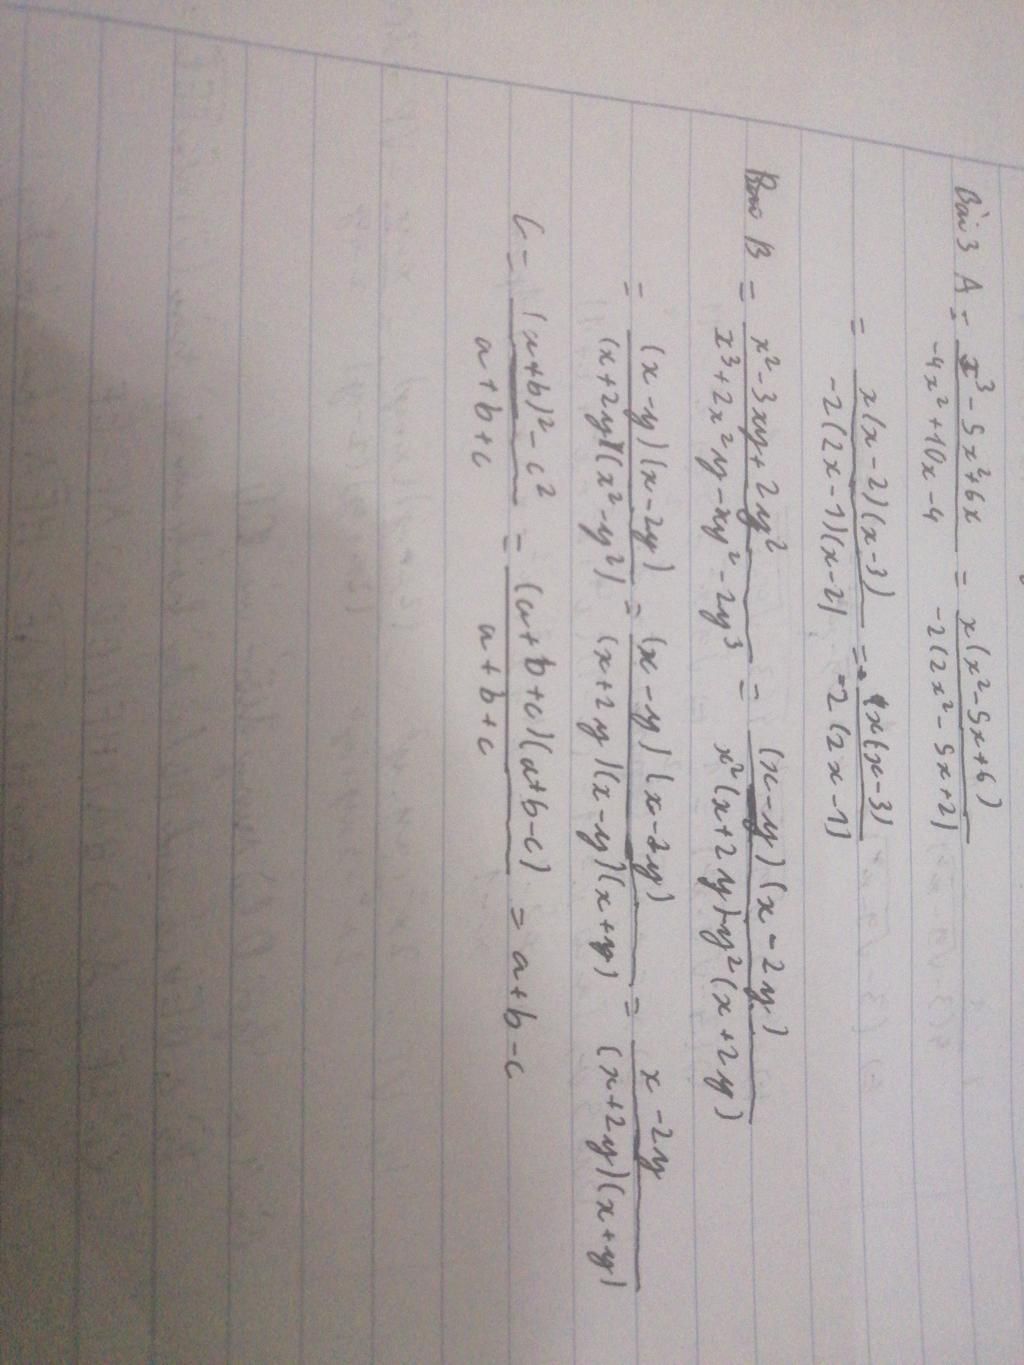 Bài 3 A = \frac{x^3 - 5x^2 + 6x}{-4x^2 + 10x - 4} = \frac{x(x^2 - 5x + 6)}{-2(2x^2 - 5x + 2)}
= \frac{x(x-2)(x-3)}{-2(2x-1)(x-2)} = \frac{x(x-3)}{-2(2x-1)}
B = \frac{x^2 - 3xy + 2y^2}{x^3 + 2x^2y - xy^2 - 2y^3} = \frac{(x-y)(x-2y)}{x^2(x+2y) - y^2(x+2y)}
= \frac{(x-y)(x-2y)}{(x+2y)(x^2-y^2)} = \frac{(x-y)(x-2y)}{(x+2y)(x-y)(x+y)} = \frac{x-2y}{(x+2y)(x+y)}
C = \frac{(a+b)^2 - c^2}{a+b+c} = \frac{(a+b+c)(a+b-c)}{a+b+c} = a+b-c